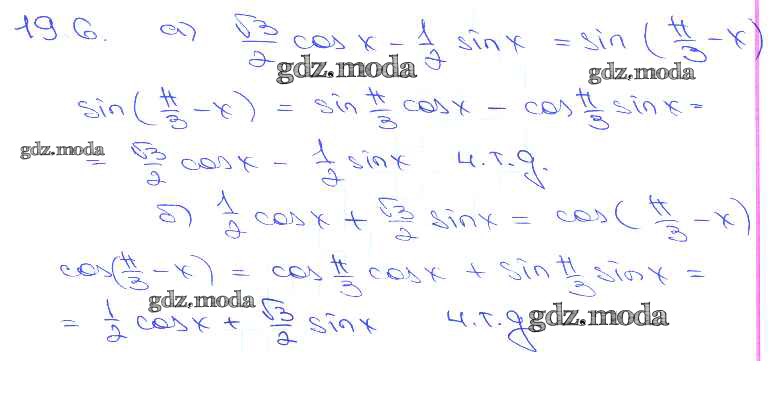 19.6. а) √3/2 cos x − 1/2 sin x = sin(π/3 − x)
gdz.moda gdz.moda
sin(π/3 − x) = sin π/3 cos x − cos π/3 sin x =
gdz.moda
= √3/2 cos x − 1/2 sin x ч.т.д.
б) 1/2 cos x + √3/2 sin x = cos(π/3 − x)
cos(π/3 − x) = cos π/3 cos x + sin π/3 sin x =
gdz.moda
= 1/2 cos x + √3/2 sin x ч.т.д gdz.moda